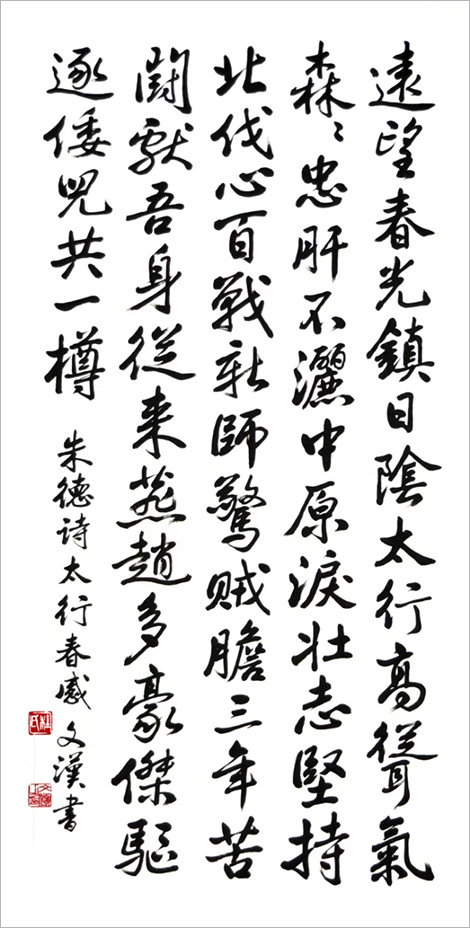 遠望春光鎮日陰太行高聳氣
森〻忠肝不灑中原淚壯志堅持
北伐心百戰新師驚賊膽三年苦
鬪獻吾身從来燕趙多豪傑驅
逐倭兒共一樽
朱德诗太行春感 文漢書
杜氏